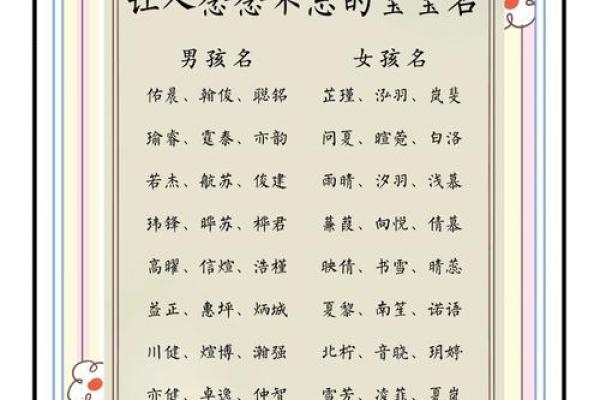 让人念念不忘的宝宝名
男孩名 女孩名
佑晨、翰俊、聪铭 芷瑾、泓羽、岚斐
瑜睿、霆泰、亦韵 问夏、暄菀、白洛
若杰、航苏、俊建 雨晴、汐羽、浅慕
玮铎、晔苏、桦君 蒹葭、向悦、倩慕
高曜、信煊、浩槿 映倩、书雪、晴蕊
益正、惠坪、炳城 夏黎、南笙、诺语
川健、煊博、瀚强 北柠、音晓、玥婷
亦健、卓逸、仲智 雪芳、凌菲、夏岚